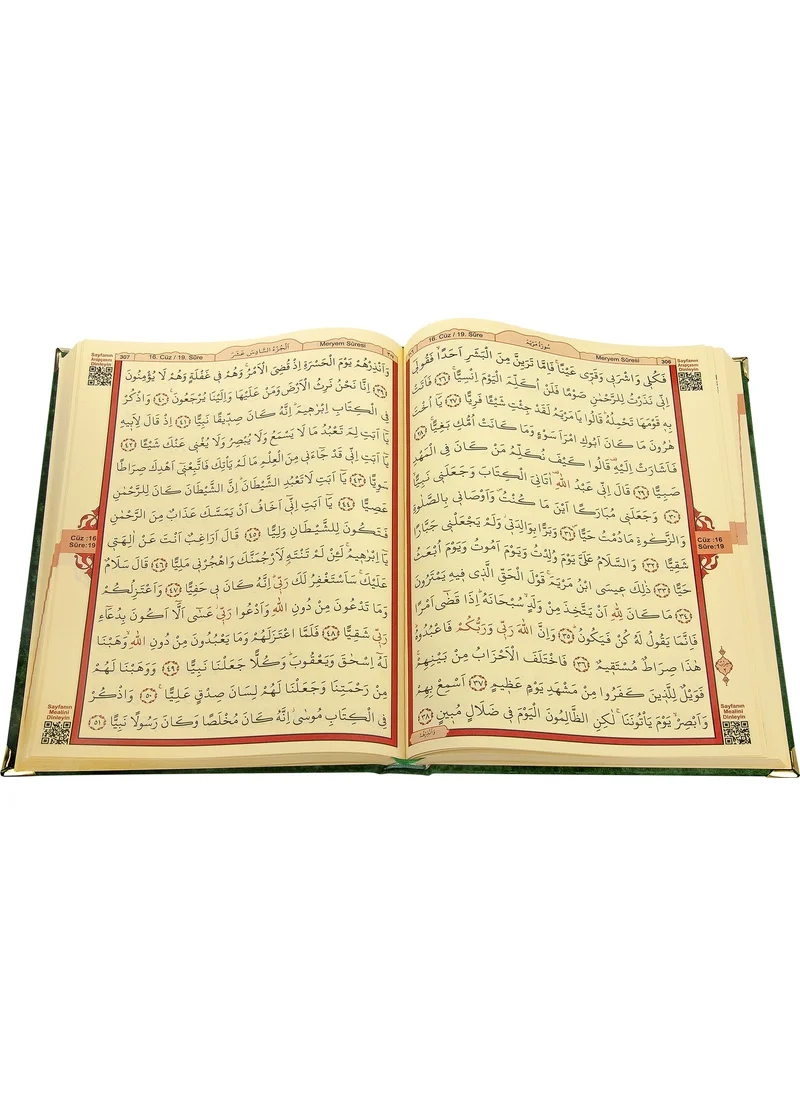 306
Meryem Sûresi
سُورَةُ مَرْيَمَ
16. Cüz / 19. Sûre
Sayfanın
Arapçasını
Dinleyin
فَكُلٖي وَاشْرَبٖي وَقَرّٖي عَيْنًاۚ فَاِمَّا تَرَيِنَّ مِنَ الْبَشَرِ اَحَدًاۙ فَقُولٖٓي
اِنّٖي نَذَرْتُ لِلرَّحْمٰنِ صَوْمًا فَلَنْ اُكَلِّمَ الْيَوْمَ اِنْسِيًّاۚ ﴿٢٦﴾ فَاَتَتْ
بِهٖ قَوْمَهَا تَحْمِلُهُۜ قَالُوا يَا مَرْيَمُ لَقَدْ جِئْتِ شَيْـًٔا فَرِيًّا ﴿٢٧﴾ يَٓا اُخْتَ
هٰرُونَ مَا كَانَ اَبُوكِ امْرَاَ سَوْءٍ وَمَا كَانَتْ اُمُّكِ بَغِيًّاۚ ﴿٢٨﴾
فَاَشَارَتْ اِلَيْهِۜ قَالُوا كَيْفَ نُكَلِّمُ مَنْ كَانَ فِي الْمَهْدِ
صَبِيًّا ﴿٢٩﴾ قَالَ اِنّٖي عَبْدُ اللّٰهِۜ اٰتَانِيَ الْكِتَابَ وَجَعَلَنٖي نَبِيًّاۙ
﴿٣٠﴾ وَجَعَلَنٖي مُبَارَكًا اَيْنَ مَا كُنْتُۖ وَاَوْصَانٖي بِالصَّلٰوةِ
وَالزَّكٰوةِ مَا دُمْتُ حَيًّاۖ ﴿٣١﴾ وَبَرًّا بِوَالِدَتٖيۘ وَلَمْ يَجْعَلْنٖي جَبَّارًا
شَقِيًّا ﴿٣٢﴾ وَالسَّلَامُ عَلَيَّ يَوْمَ وُلِدْتُ وَيَوْمَ اَمُوتُ وَيَوْمَ اُبْعَثُ
حَيًّا ﴿٣٣﴾ ذٰلِكَ عٖيسَى ابْنُ مَرْيَمَۚ قَوْلَ الْحَقِّ الَّذٖي فٖيهِ يَمْتَرُونَ
﴿٣٤﴾ مَا كَانَ لِلّٰهِ اَنْ يَتَّخِذَ مِنْ وَلَدٍۙ سُبْحَانَهُۜ اِذَا قَضٰٓى اَمْرًا
فَاِنَّمَا يَقُولُ لَهُ كُنْ فَيَكُونُۜ ﴿٣٥﴾ وَاِنَّ اللّٰهَ رَبّٖي وَرَبُّكُمْ فَاعْبُدُوهُۜ
هٰذَا صِرَاطٌ مُسْتَقٖيمٌ ﴿٣٦﴾ فَاخْتَلَفَ الْاَحْزَابُ مِنْ بَيْنِهِمْۚ
فَوَيْلٌ لِلَّذٖينَ كَفَرُوا مِنْ مَشْهَدِ يَوْمٍ عَظٖيمٍ ﴿٣٧﴾ اَسْمِعْ بِهِمْ
وَاَبْصِرْۙ يَوْمَ يَأْتُونَنَا لٰكِنِ الظَّالِمُونَ الْيَوْمَ فٖي ضَلَالٍ مُبٖينٍ ﴿٣٨﴾
Cüz :16
Sûre:19
Sayfanın
Mealini
Dinleyin
الْجُزْءُ السَّادِسُ عَشَرَ
Meryem Sûresi
16. Cüz / 19. Sûre
307
Sayfanın
Arapçasını
Dinleyin
وَاَنْذِرْهُمْ يَوْمَ الْحَسْرَةِ اِذْ قُضِيَ الْاَمْرُۢ وَهُمْ فٖي غَفْلَةٍ وَهُمْ لَا يُؤْمِنُونَ
﴿٣٩﴾ اِنَّا نَحْنُ نَرِثُ الْاَرْضَ وَمَنْ عَلَيْهَا وَاِلَيْنَا يُرْجَعُونَ۟ ﴿٤٠﴾ وَاذْكُرْ
فِي الْكِتَابِ اِبْرٰهٖيمَۜ اِنَّهُ كَانَ صِدّٖيقًا نَبِيًّا ﴿٤١﴾ اِذْ قَالَ لِاَبٖيهِ
يَٓا اَبَتِ لِمَ تَعْبُدُ مَا لَا يَسْمَعُ وَلَا يُبْصِرُ وَلَا يُغْنٖي عَنْكَ شَيْـًٔا ﴿٤٢﴾
يَٓا اَبَتِ اِنّٖي قَدْ جَٓاءَنٖي مِنَ الْعِلْمِ مَا لَمْ يَأْتِكَ فَاتَّبِعْنٖٓي اَهْدِكَ صِرَاطًا
سَوِيًّا ﴿٤٣﴾ يَٓا اَبَتِ لَا تَعْبُدِ الشَّيْطَانَۜ اِنَّ الشَّيْطَانَ كَانَ لِلرَّحْمٰنِ
عَصِيًّا ﴿٤٤﴾ يَٓا اَبَتِ اِنّٖٓي اَخَافُ اَنْ يَمَسَّكَ عَذَابٌ مِنَ الرَّحْمٰنِ
فَتَكُونَ لِلشَّيْطَانِ وَلِيًّا ﴿٤٥﴾ قَالَ اَرَاغِبٌ اَنْتَ عَنْ اٰلِهَتٖي
يَٓا اِبْرٰهٖيمُۚ لَئِنْ لَمْ تَنْتَهِ لَاَرْجُمَنَّكَ وَاهْجُرْنٖي مَلِيًّا ﴿٤٦﴾ قَالَ سَلَامٌ
عَلَيْكَۚ سَاَسْتَغْفِرُ لَكَ رَبّٖيۜ اِنَّهُ كَانَ بٖي حَفِيًّا ﴿٤٧﴾ وَاَعْتَزِلُكُمْ
وَمَا تَدْعُونَ مِنْ دُونِ اللّٰهِ وَاَدْعُوا رَبّٖيۘ عَسٰٓى اَلَّٓا اَكُونَ بِدُعَٓاءِ
رَبّٖي شَقِيًّا ﴿٤٨﴾ فَلَمَّا اعْتَزَلَهُمْ وَمَا يَعْبُدُونَ مِنْ دُونِ اللّٰهِۙ وَهَبْنَا
لَهُٓ اِسْحٰقَ وَيَعْقُوبَۜ وَكُلًّا جَعَلْنَا نَبِيًّا ﴿٤٩﴾ وَوَهَبْنَا لَهُمْ
مِنْ رَحْمَتِنَا وَجَعَلْنَا لَهُمْ لِسَانَ صِدْقٍ عَلِيًّا۟ ﴿٥٠﴾ وَاذْكُرْ
فِي الْكِتَابِ مُوسٰىۘ اِنَّهُ كَانَ مُخْلَصًا وَكَانَ رَسُولًا نَبِيًّا ﴿٥١﴾
Cüz :16
Sûre:19
Sayfanın
Mealini
Dinleyin